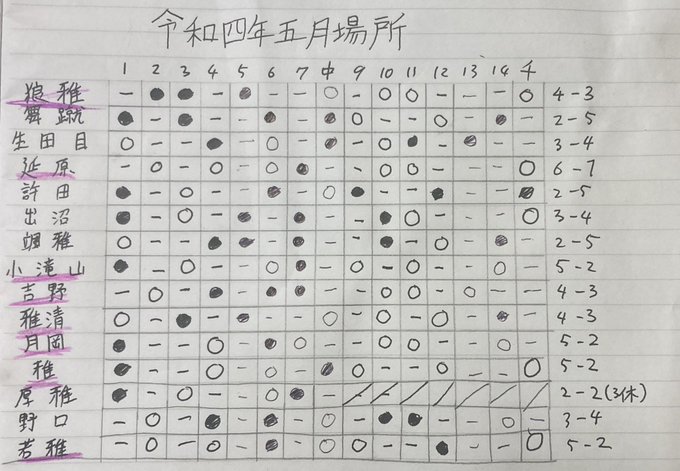 令和四年五月場所
1 2 3 4 5 6 7 中 9 10 11 12 13 14 千
狼雅 − ● ● − ● − − ○ − ○ ○ − − − ○ 4-3
舞蹴 ● − ● − − ● − ● ○ − − ○ − ● − 2-5
生田目 ○ − − ● − ○ − ● − ○ ● − ● − − 3-4
延原 − ○ − ○ − ○ ● − − ○ ○ − − − ○ 6-7
許田 ● − ○ − − ● − ○ ● − − ● − − ● 2-5
出沼 ● − ○ − ● − ● − − ● ○ − − − ○ 3-4
颯雅 ○ − − ● ● − ● − − ● − ○ − ● − 2-5
小滝山 ● − ○ − − ○ ● − ○ − ○ − − ○ − 5-2
吉野 − ○ − ● − ● ● − − ○ ○ − ○ − − 4-3
雅清 ○ − ● − ● − − ○ − ○ − ○ − ● − 4-3
月岡 ● − − ○ − ● ○ − − ○ ○ − − ○ − 5-2
稚 ● − − ○ − ○ − ● ○ − ○ − − − ○ 5-2
原稚 ● − ○ − − ○ ● − / / / / / / / 2-2(3休)
野口 − ○ − ● − ● − ○ − ● ● − − ○ − 3-4
若雅 − ○ − ○ − ● − ○ ○ − − ● − − ○ 5-2